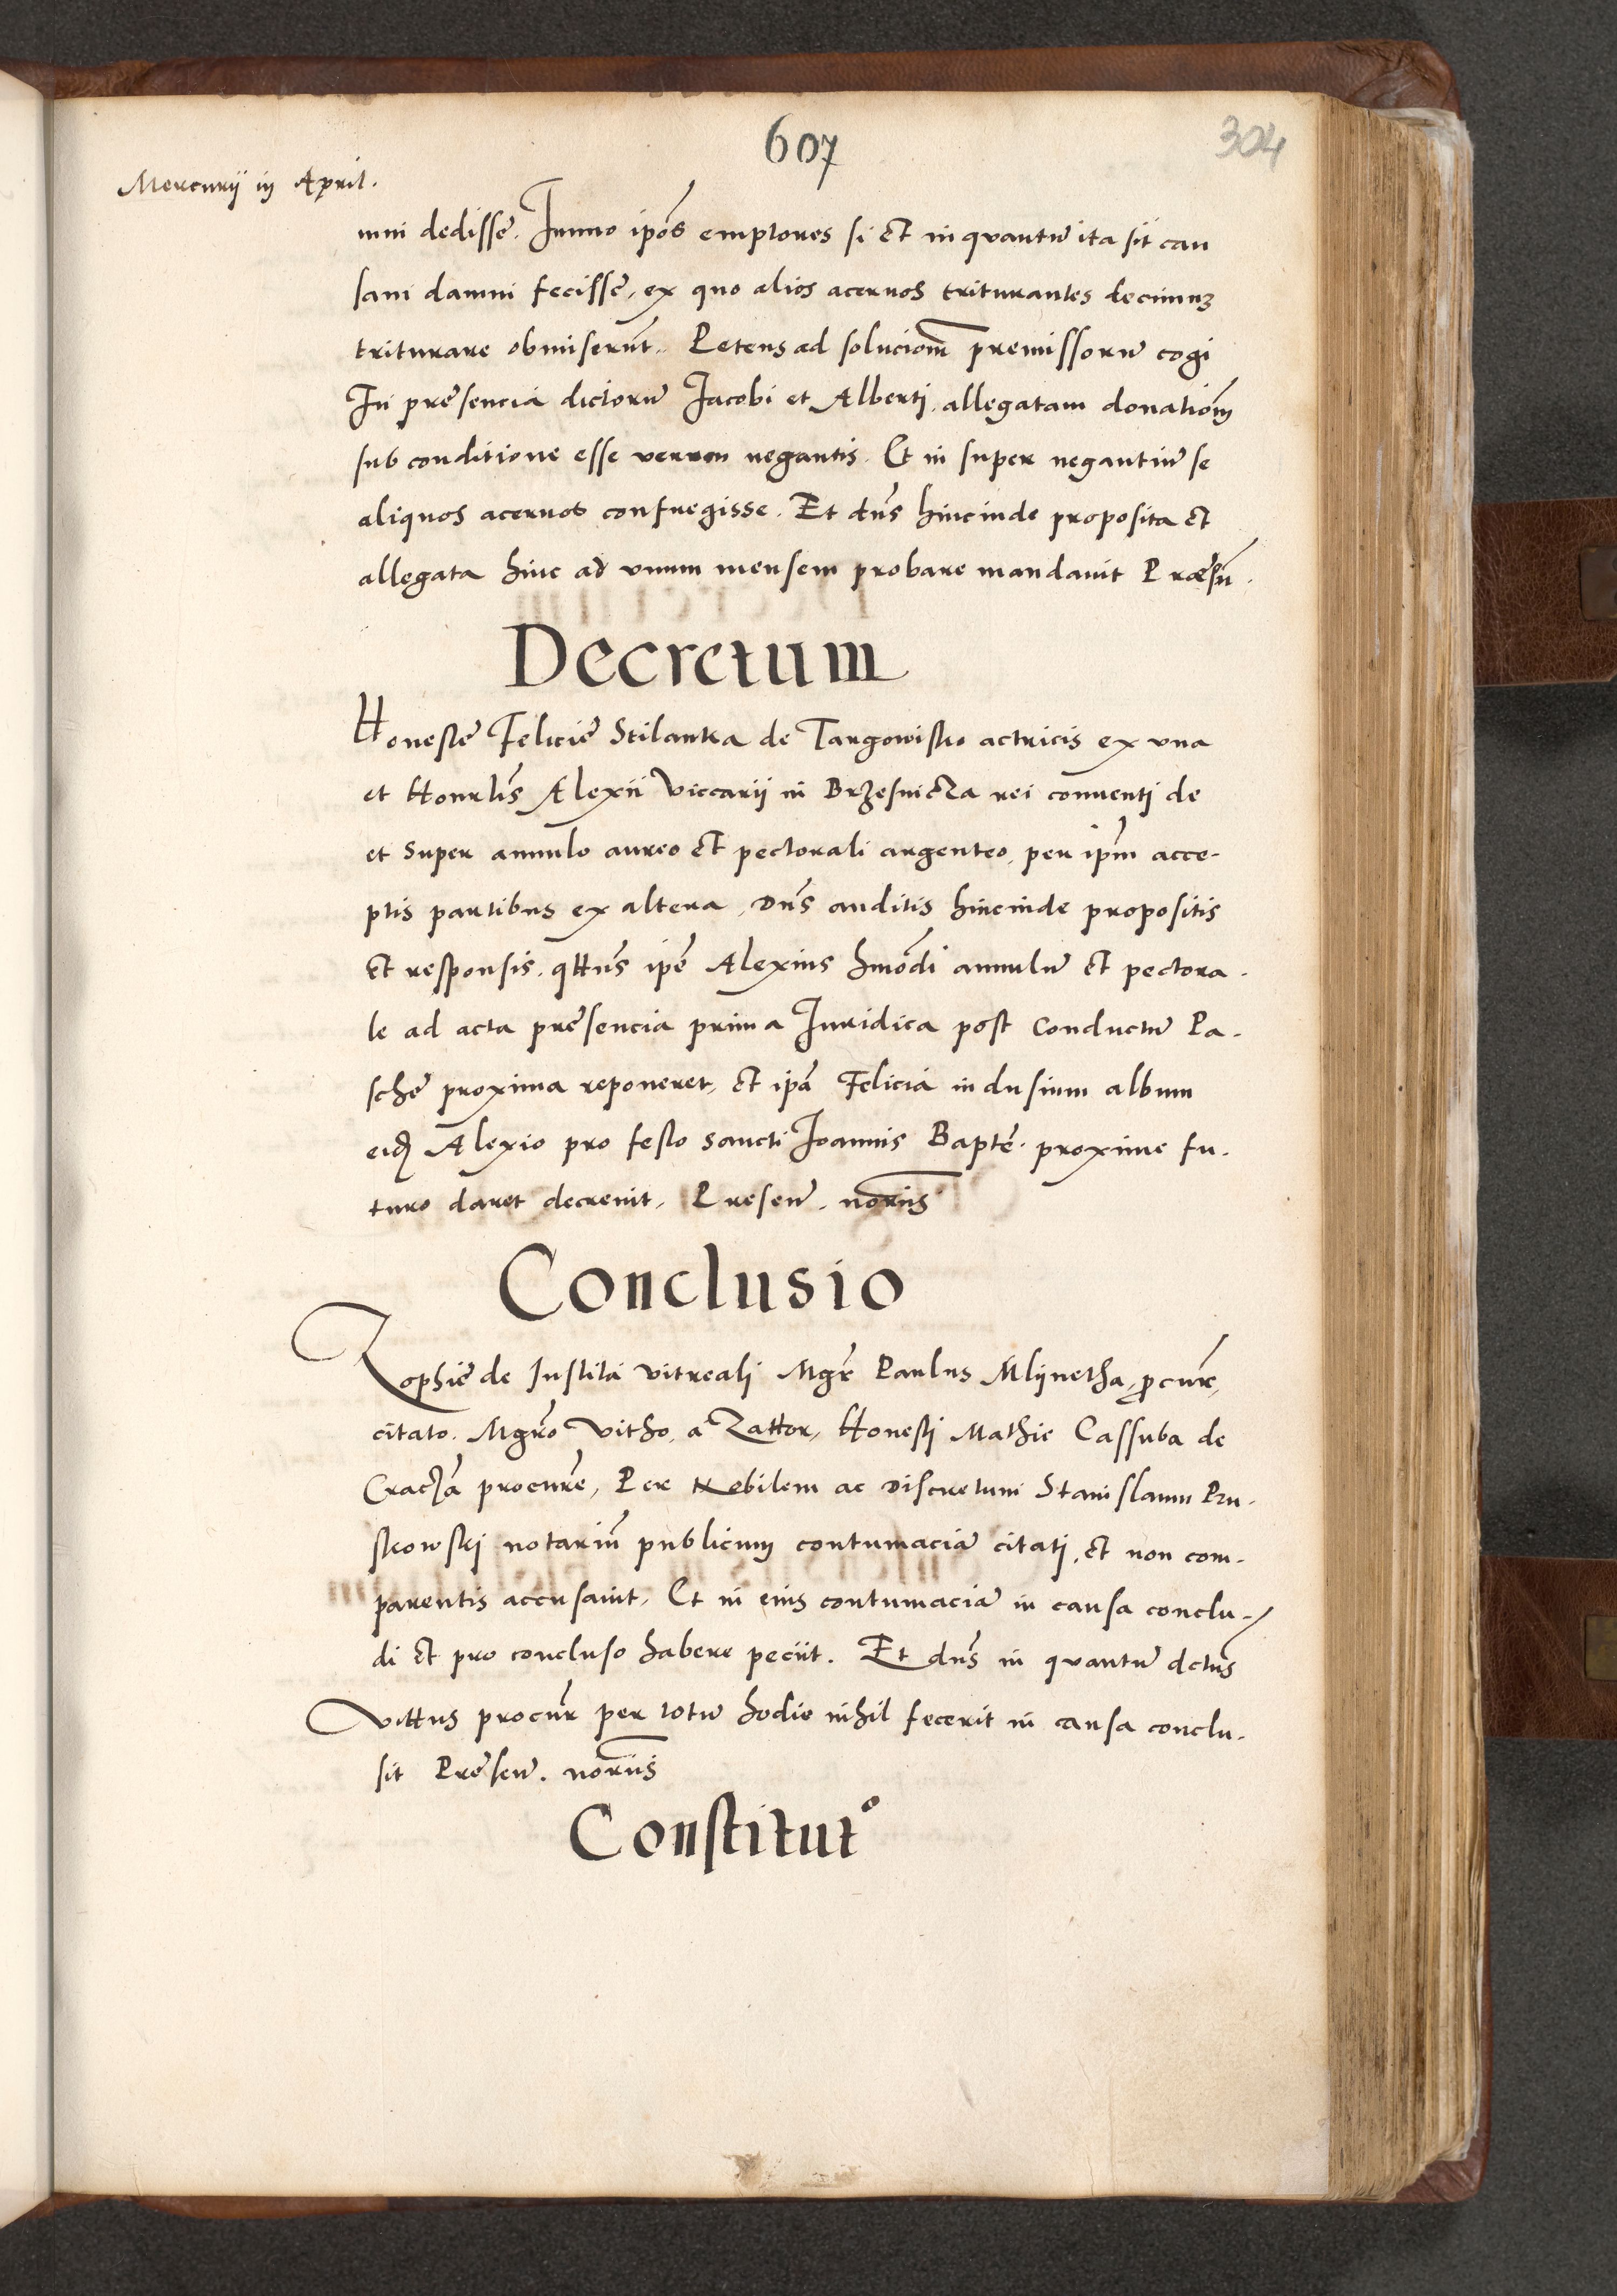 607
304
Mercurij iij April.
mni dedisse. Immo ipos emptores si et in quantu ita sit cau
sam damni fecisse, ex quo alios acervos triturantes decimus
triturare obmiserunt. Petens ad solucionem premissoru cogi
In presencia dictoru Jacobi et Alberti, allegatam donationem
sub conditione esse veram negantis. Et in super negantiu se
aliquos acervos confregisse. Et dns hincinde proposita et
allegata hinc ad unum mensem probare mandavit Præsn.
Decretum
Honeste Felicie Stilanka de Targowisko actricis ex una
et Honrlis Alexii Viccarii in Brzesnicza rei conventi de
et super annulo aureo et pectorali argenteo, per ipm acce-
ptis partibus ex altera, Dns auditis hincinde propositis
et responsis. qttns ipe Alexius hmodi annulu et pectora-
le ad acta presencia prima Juridica post conductu Pa-
sche proxima reponeret, et ipa Felicia indusium album
eid Alexio pro festo sancti Joannis Bapte. proxime fu-
turo daret decrevit, Presen. noriis
Conclusio
Zophie de Institá vitreali Mgr Paulus Mlijnetha, procur,
citato. Mgro Vitho, a Zattor, Honesti Mathie Cassuba de
Craczá procure, Per Nobilem ac Discretum Stanislamu Pru-
skowskj notariu publicum contumacia citatj, et non com-
parentis accusavit, Et in eius contumacia in causa conclu-
di et pro concluso habere peciit. Et dns in quantu dctus
Vittus procur per totu hodie nihil fecerit in causa conclu-
sit Presen. noriis
Constitut°